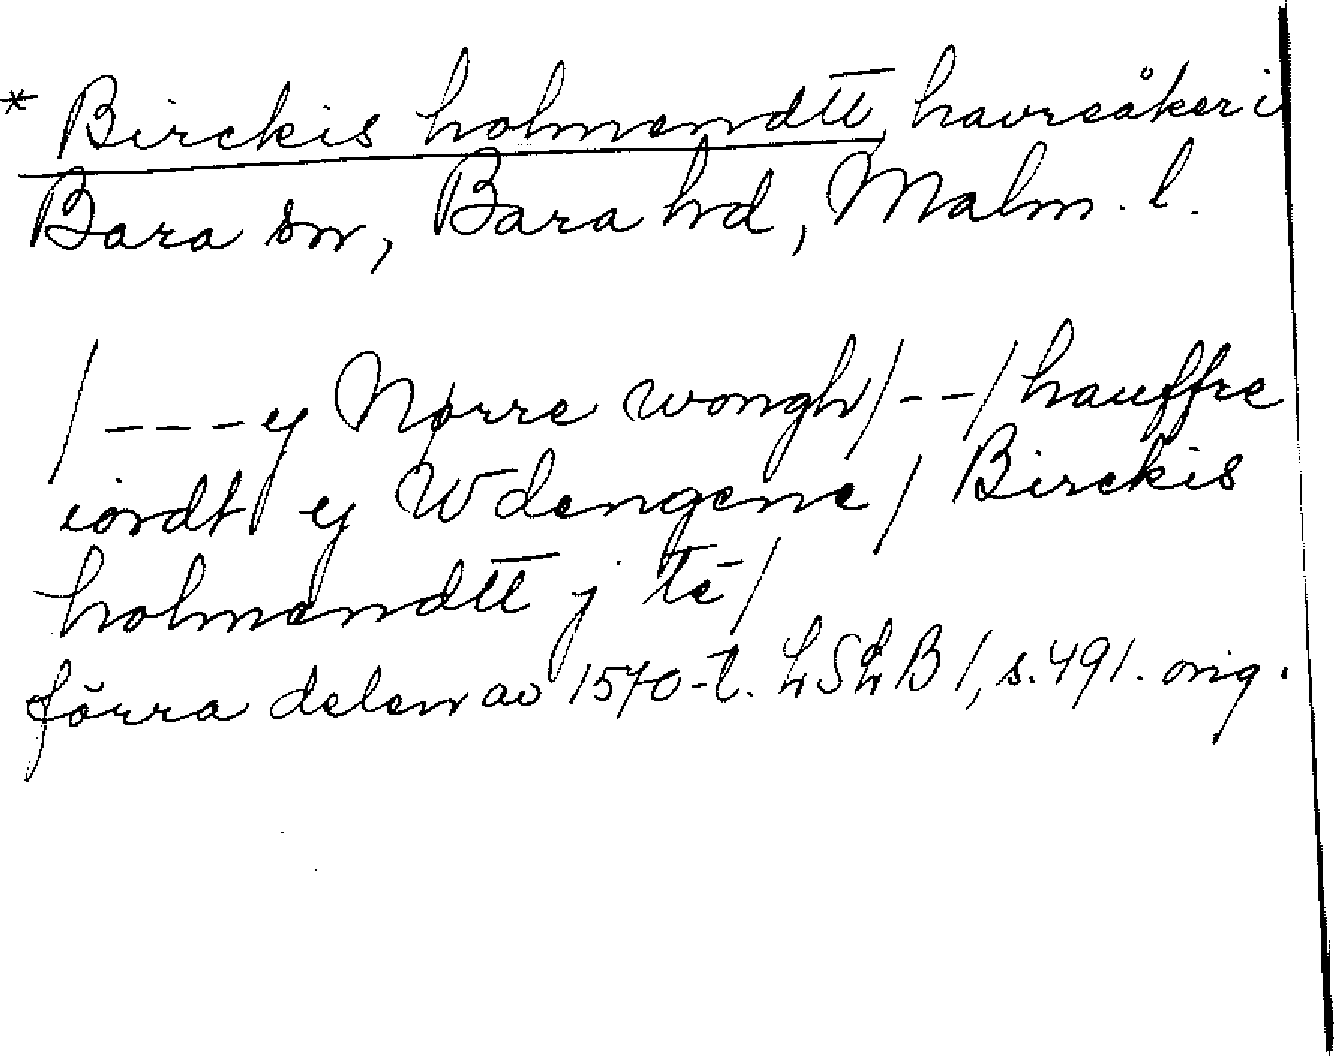 * Birckis holmendtt, havreåker i
Bara sn, Bara hd, Malm. l.
/ - - - ej Nørre wongh / - - / hauffre
iordt ej Wdengene / Birckis
holmendtt j tē /
förra delen av 1570-t. LSLB 1, s. 491. orig.